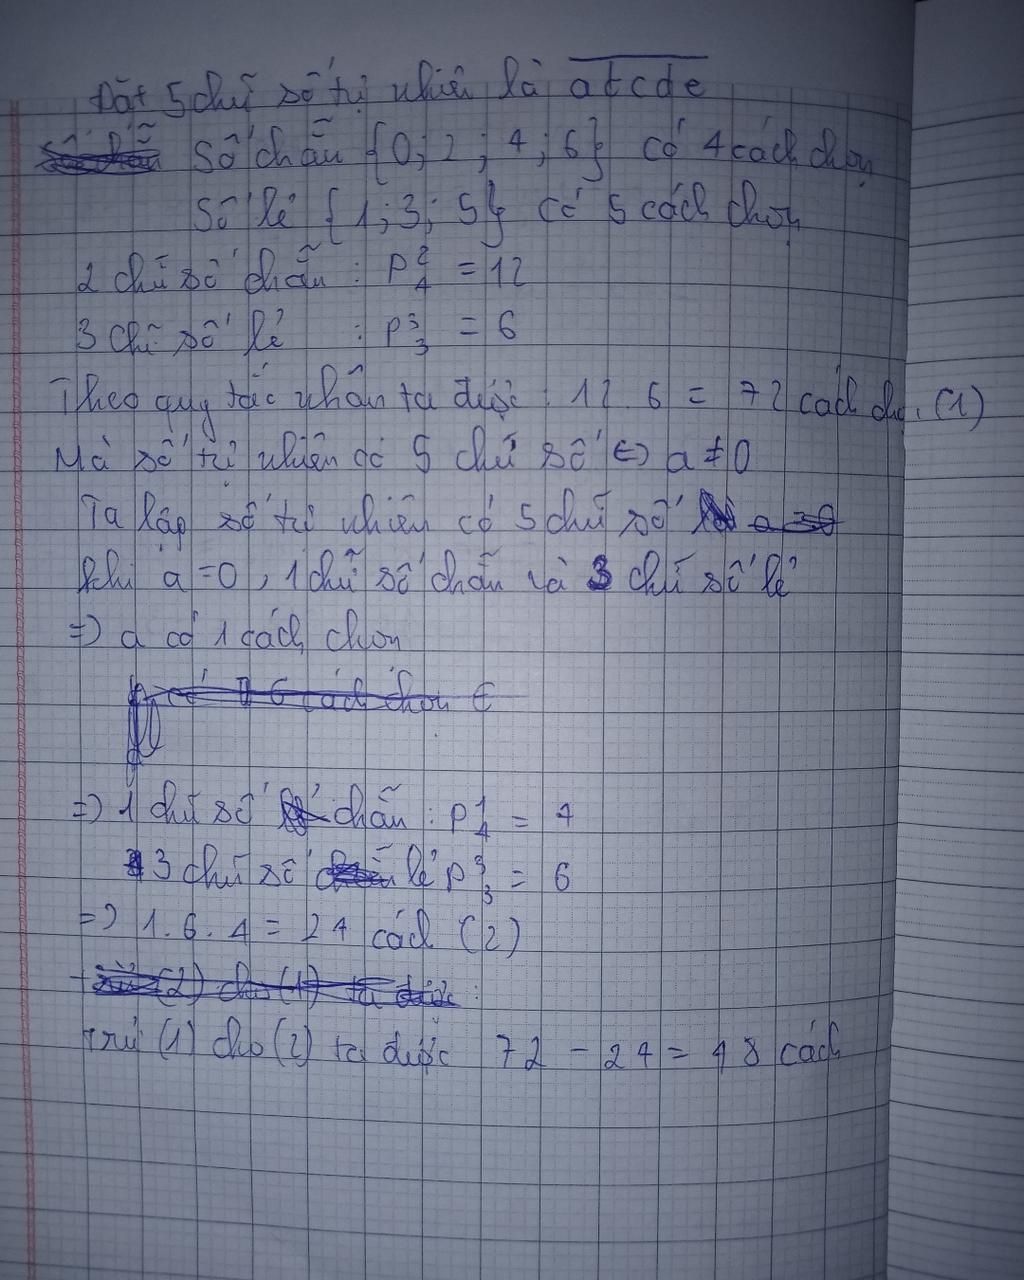 Đặt 5 chữ số tự nhiên là abcde
Số chẵn {0; 2; 4; 6} có 4 cách chọn
Số lẻ {1; 3; 5} có 5 cách chọn
2 chữ số chẵn : P²₄ = 12
3 chữ số lẻ : P³₃ = 6
Theo quy tắc nhân ta được : 12.6 = 72 cách chọn (1)
Mà số tự nhiên có 5 chữ số ⇔ a ≠ 0
Ta lập số tự nhiên có 5 chữ số
khi a = 0, 1 chữ số chẵn và 3 chữ số lẻ
=> a có 1 cách chọn
có 6 cách chọn €
=> 1 chữ số chẵn : P¹₄ = 4
3 chữ số lẻ P³₃ = 6
=> 1.6.4 = 24 cách (2)
(2) cho (1) ta được :
trừ (1) cho (2) ta được 72 - 24 = 48 cách